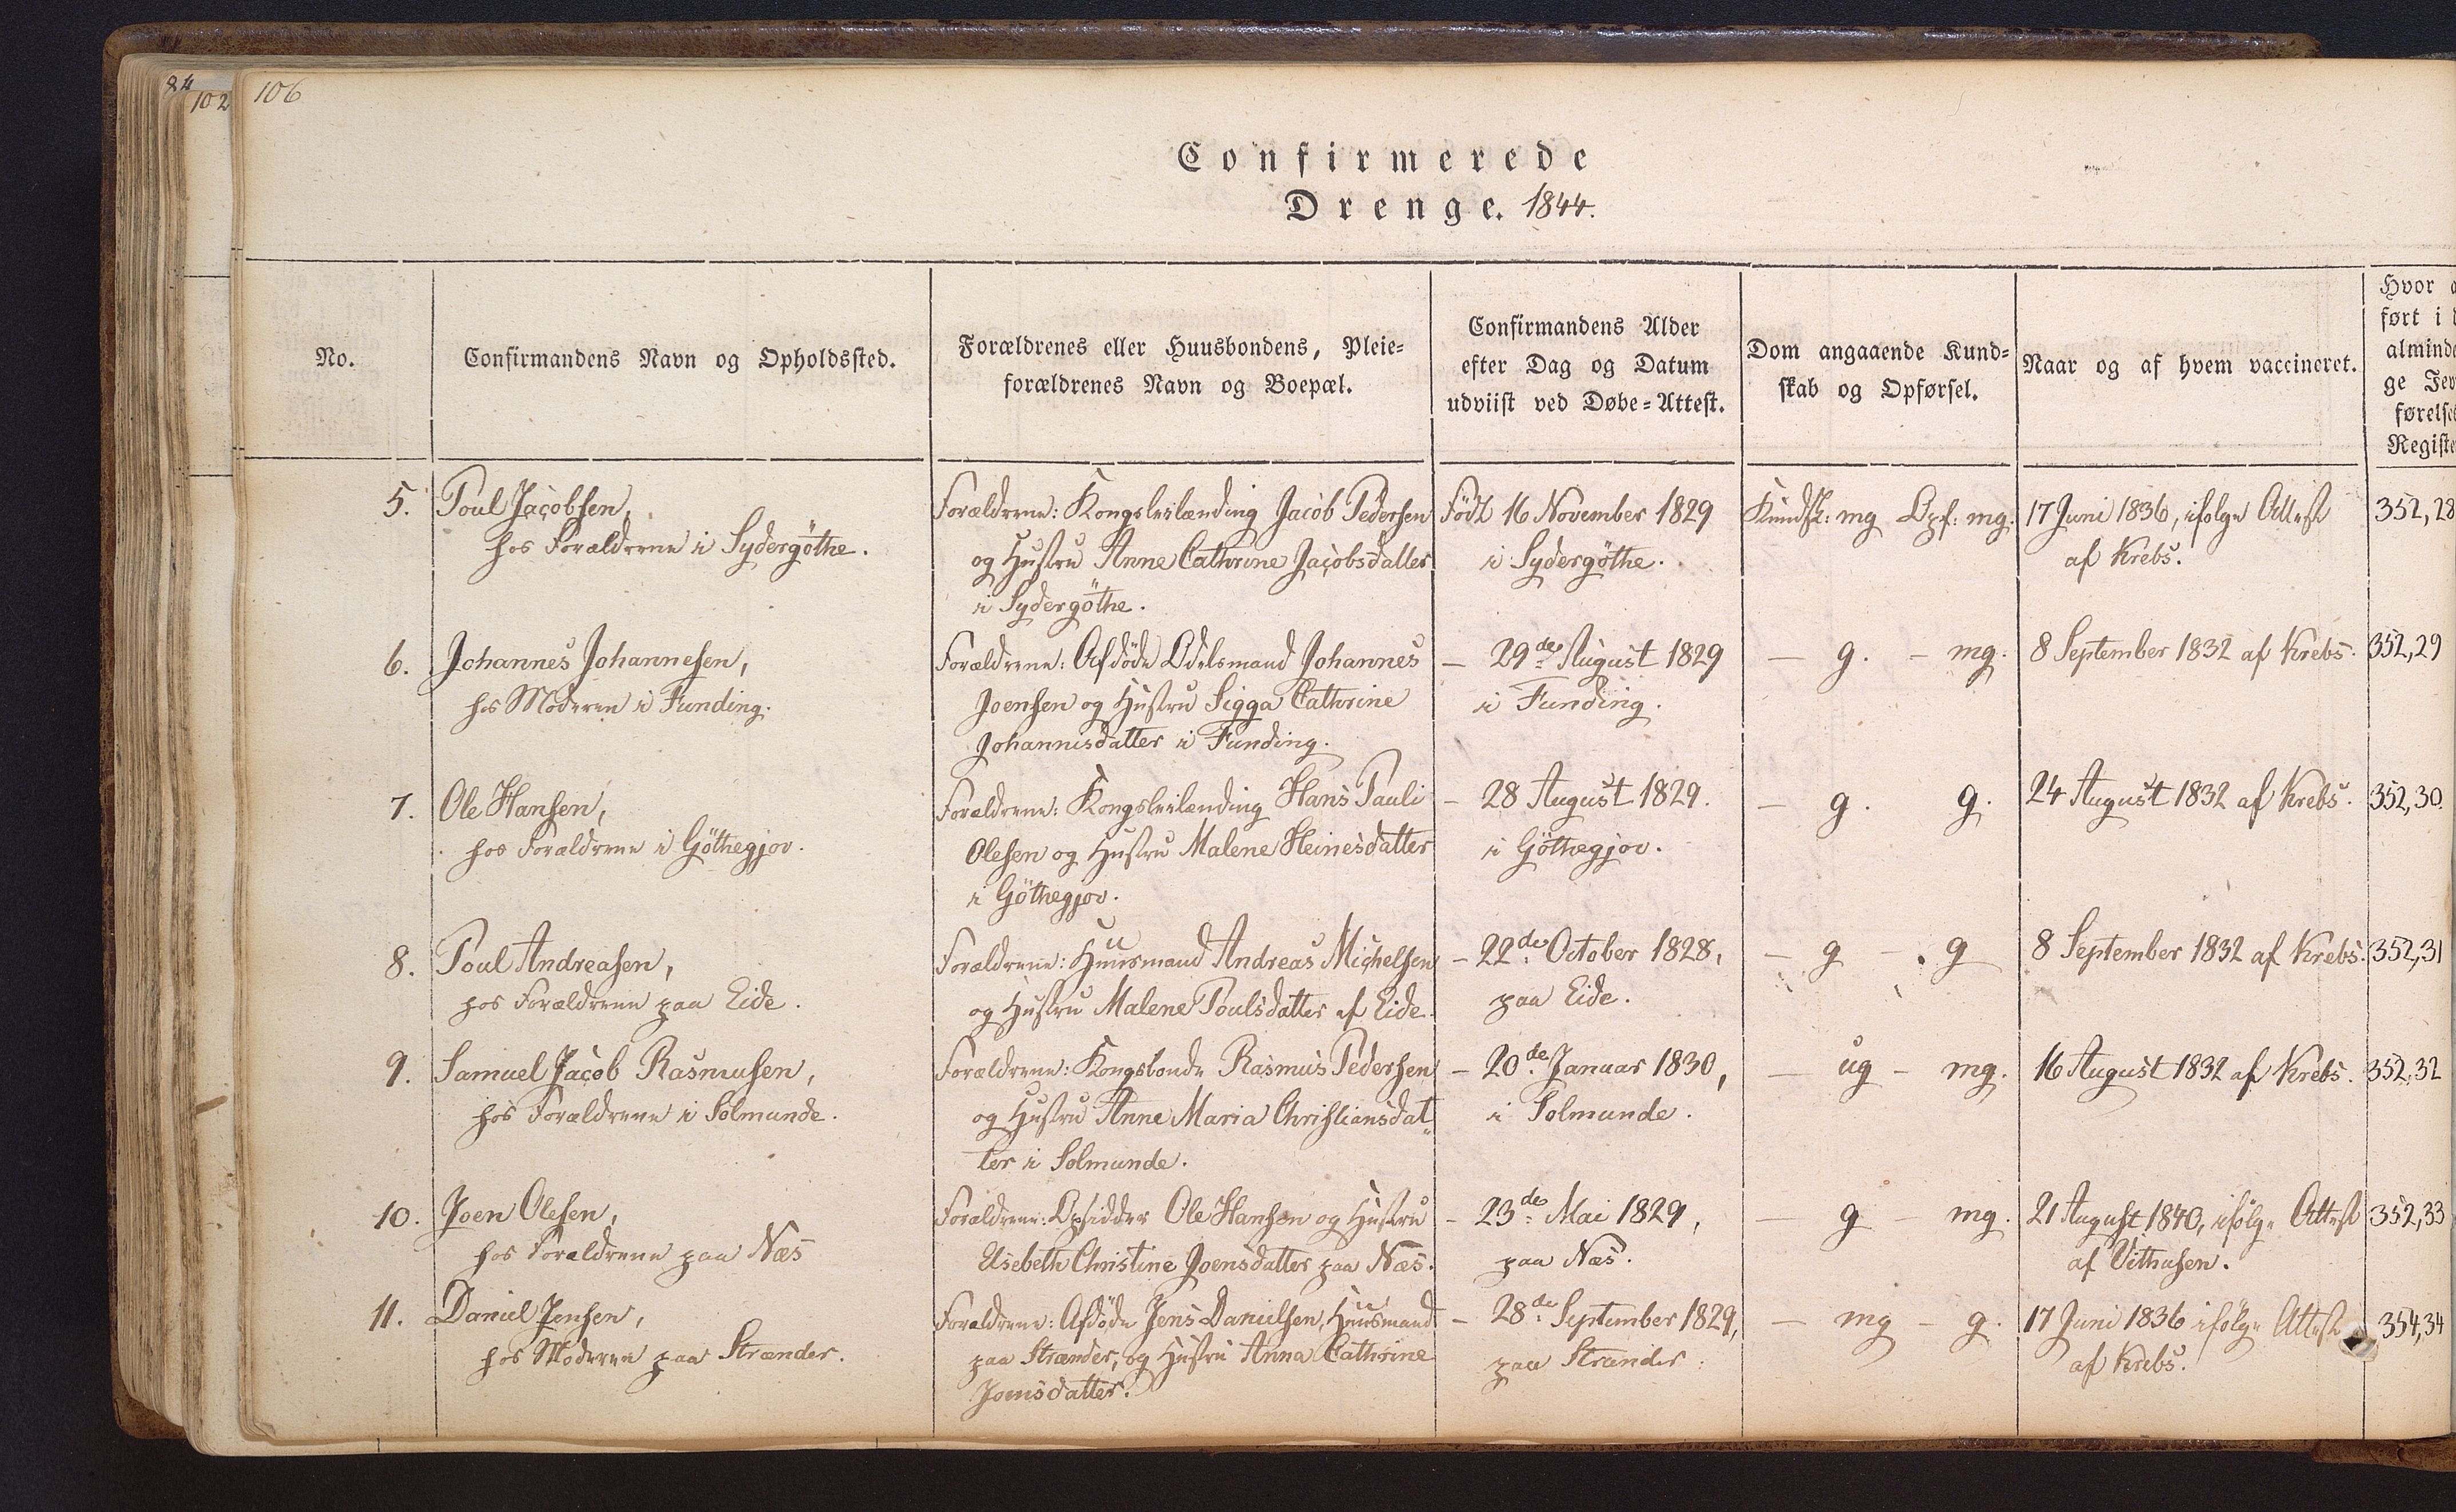 84
102
106
Confirmerede
Drenge. 1844.
No.
Confirmandens Navn og Opholdssted.
Forældrenes eller Huusbondens, Pleie=
forældrenes Navn og Boepæl.
Confirmandens Alder
efter Dag og Datum
udviist ved Døbe=Attest.
Dom angaaende Kund=
skab og Opførsel.
Naar og af hvem vaccineret.
Hvor
ført i
alminde
ge Jev
førelse
Registe
5. Poul Jacobsen,
hos Forældrene i Sydergöthe.
Forældrene: Kongsleilænding Jacob Pedersen
og Hustru Anne Cathrine Jacobsdatter
i Sydergöthe.
Født 16 November 1829
i Sydergöthe.
Kundsk: mg Opf: mg.
17 Juni 1836, ifølge Attest
af Krebs.
352,28
6. Johannes Johannesen,
hos Moderen i Funding.
Forældrene: Afdöde Odelsmand Johannes
Joensen og Hustru Sigga Cathrine
Johannisdatter i Funding.
– 29de August 1829
i Funding.
– g. – mg.
8 September 1832 af Krebs.
352,29
7. Ole Hansen,
hos Forældrene i Göthegjov.
Forældrene: Kongsleilænding Hans Pauli
Olesen og Hustru Malene Heinesdatter
i Göthegjov.
– 28 August 1829.
i Göthegjov.
– g. g.
24 August 1832 af Krebs.
352,30.
8. Poul Andreasen,
hos Forældrene paa Eide.
Forældrene: Huusmand Andreas Michelsen
og Hustru Malene Poulsdatter af Eide.
– 22de October 1828,
paa Eide.
– g – g
8 September 1832 af Krebs.
352,31
9. Samuel Jacob Rasmusen,
hos Forældrene i Solmunde.
Forældrene: Kongsbonde Rasmus Pedersen
og Hustru Anne Maria Christiansdat„
ter i Solmunde.
– 20de Januar 1830,
i Solmunde.
– ug – mg.
16 August 1832 af Krebs.
352,32
10. Joen Olesen,
hos Forældrene paa Næs
Forældrene: Opsidder Ole Hansen og Hustru
Elsebeth Christine Joensdatter paa Næs.
– 23de Mai 1829,
paa Næs.
– g – mg.
21 August 1840, ifölge Attest
af Dithusen.
352,33
11. Daniel Jensen,
hos Moderen paa Strænder.
Forældrene: Afdöde Jens Danielsen, Huusmand
paa Strænder, og Hustru Anna Cathrine
Joensdatter.
– 28de September 1829,
paa Strænder.
– mg – g.
17 Juni 1836 ifölge Attest
af Krebs.
354,34